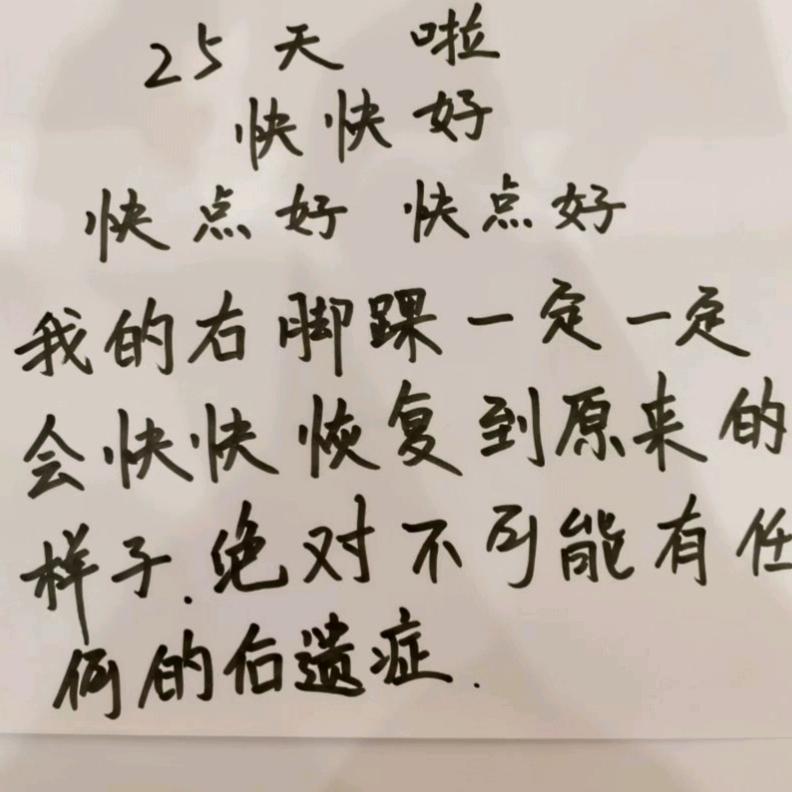 25天啦
快快好
快点好 快点好
我的右脚踝一定一定
会快快恢复到原来的
样子.绝对不可能有任
何的后遗症.